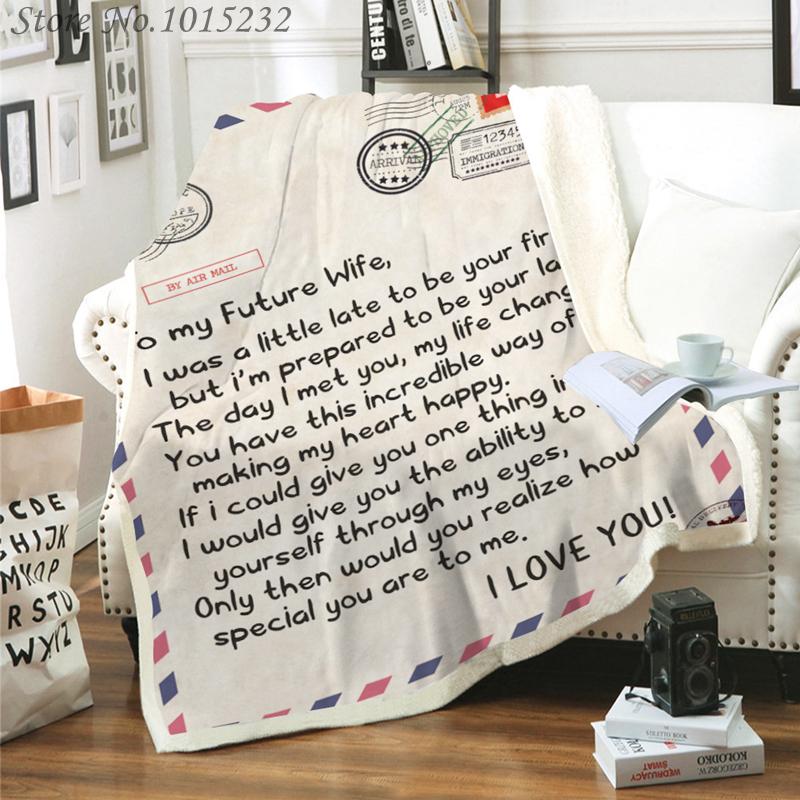 Store No.1015232
CENTURY
tro di te
ARRIVAL
12345
IMMIGRATION
BY AIR MAIL
o my Future Wife,
I was a little late to be your fir
but i'm prepared to be your la
The day I met you, my life chang
You have this incredible way of
making my heart happy.
If i could give you one thing in
I would give you the ability to
yourself through my eyes,
Only then would you realize how
special you are to me.
I LOVE YOU!
CDE
HIJK
MNOP
RSTU
WXYZ
ROLLEIFLEX
BOOK
GRZEGORZ W. KOŁODKO
WĘDRUJĄCY
ŚWIAT